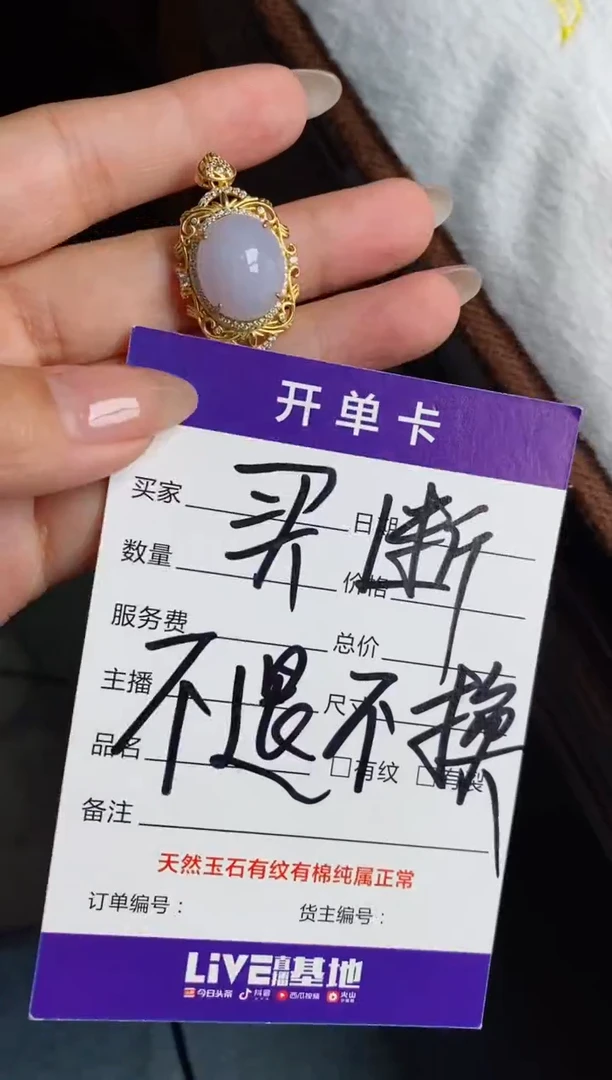 开单卡
买家 日期
买断
数量 价格
服务费 总价
主播 尺寸
不退不换
品名 □有纹 □有裂
备注
天然玉石有纹有棉纯属正常
订单编号： 货主编号：
LiVE直播基地
今日头条 抖音 西瓜视频 火山